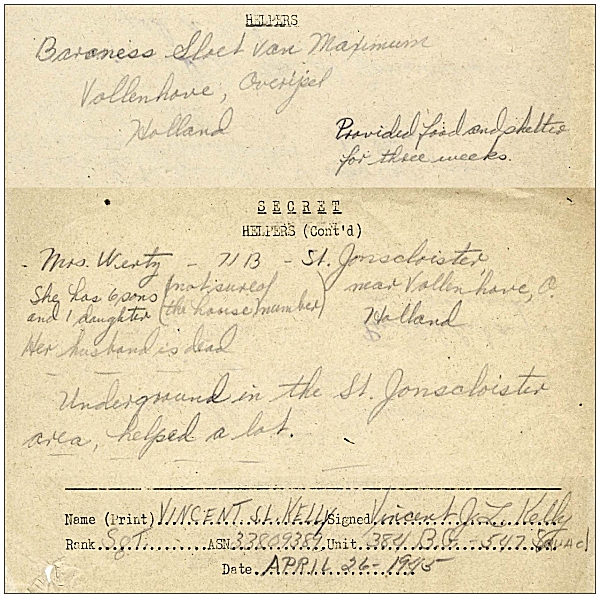 HELPERS
Baroness Sloet van Maximum
Vollenhove, Overijsel
Holland
Provided food and shelter
for three weeks.
SECRET
HELPERS (Cont'd)
Mrs. Wertz - 71B - St. Jonscloister
She has 6 sons (not sure of near Vollenhove, O.
and 1 daughter the house number) Holland
Her husband is dead
Underground in the St. Jonscloister
area, helped a lot.
Name (Print) VINCENT J.L. KELLY Signed Vincent J.L. Kelly
Rank Sgt. ASN 33809389 Unit 384 B.G. - 547 Squad
Date APRIL 26 - 1945